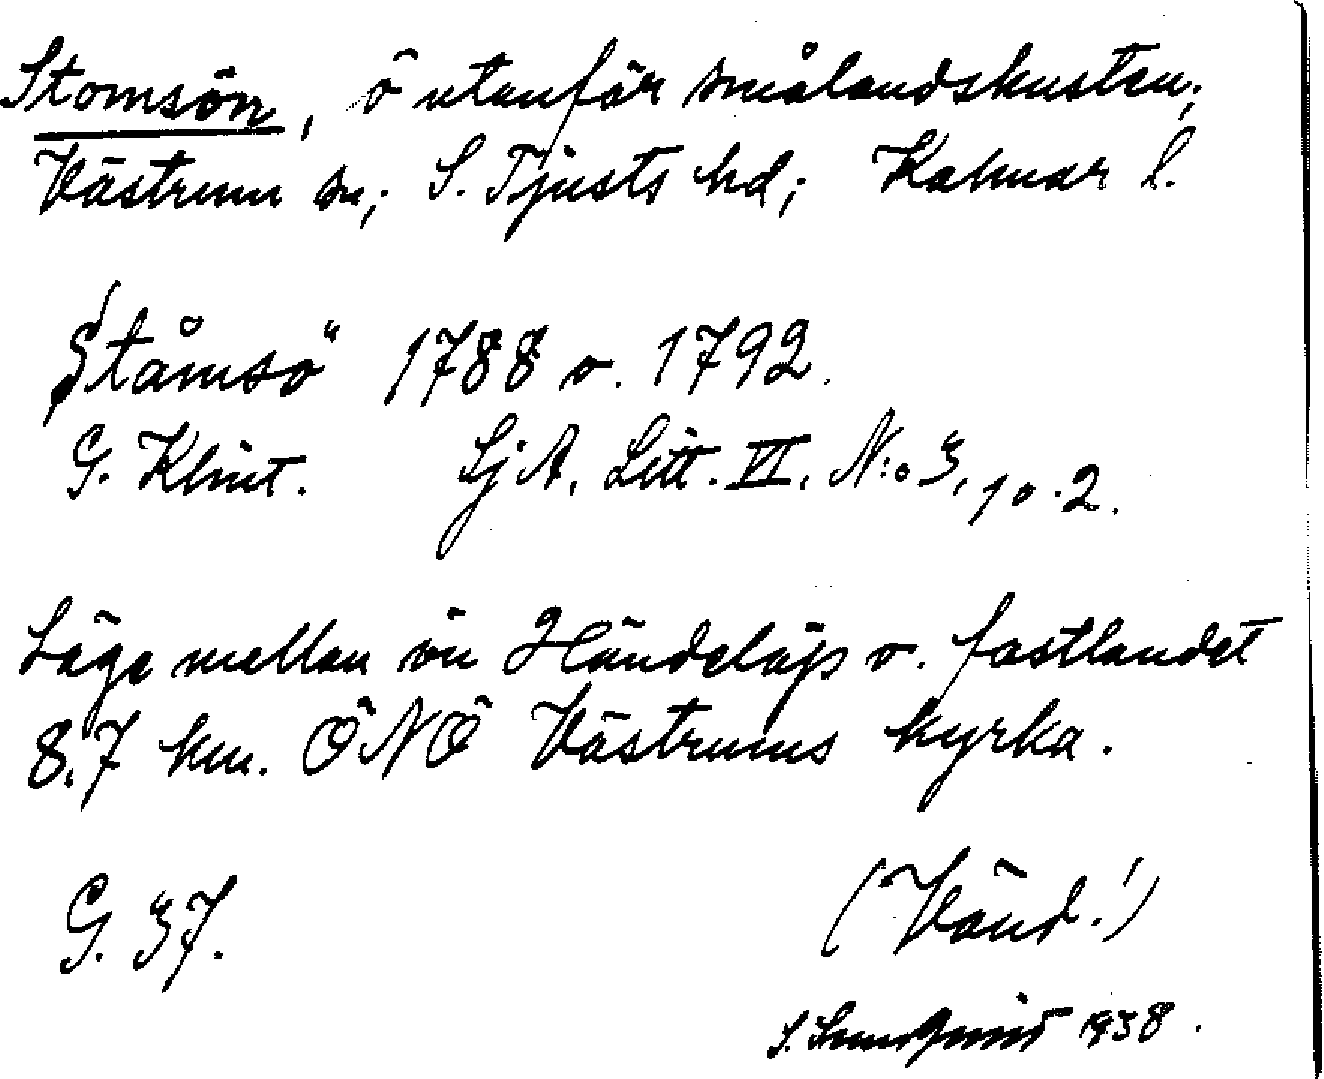 Stomsön, ö utanför smålandskusten;
Västrum sn; S. Tjusts hd; Kalmar l.
Ståmsö 1788 o. 1792.
G. Klint. SjA. Litt. VI. N:o 3, 1 o. 2.
Läge mellan ön Händelöp o. fastlandet
8,7 km. ÖNÖ Västrums kyrka.
G. 37.
(Vänd!)
S. 1938.